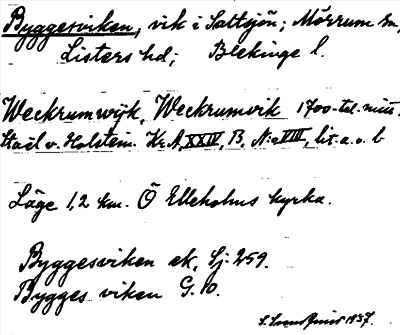 Byggesviken, vik i Saltsjön; Mörrum sn,
Listers hd; Blekinge l.
Weckrumwijk, Weckrumvik 1700-tal. mitt.
Staël v. Holstein. Kr. A, XXIV, B, N:o VIII, lit. a. o. b
Läge 1,2 km. Ö Elleholms kyrka.
Byggesviken ek. Sj: 259.
Bygges viken G. 10.
1937.